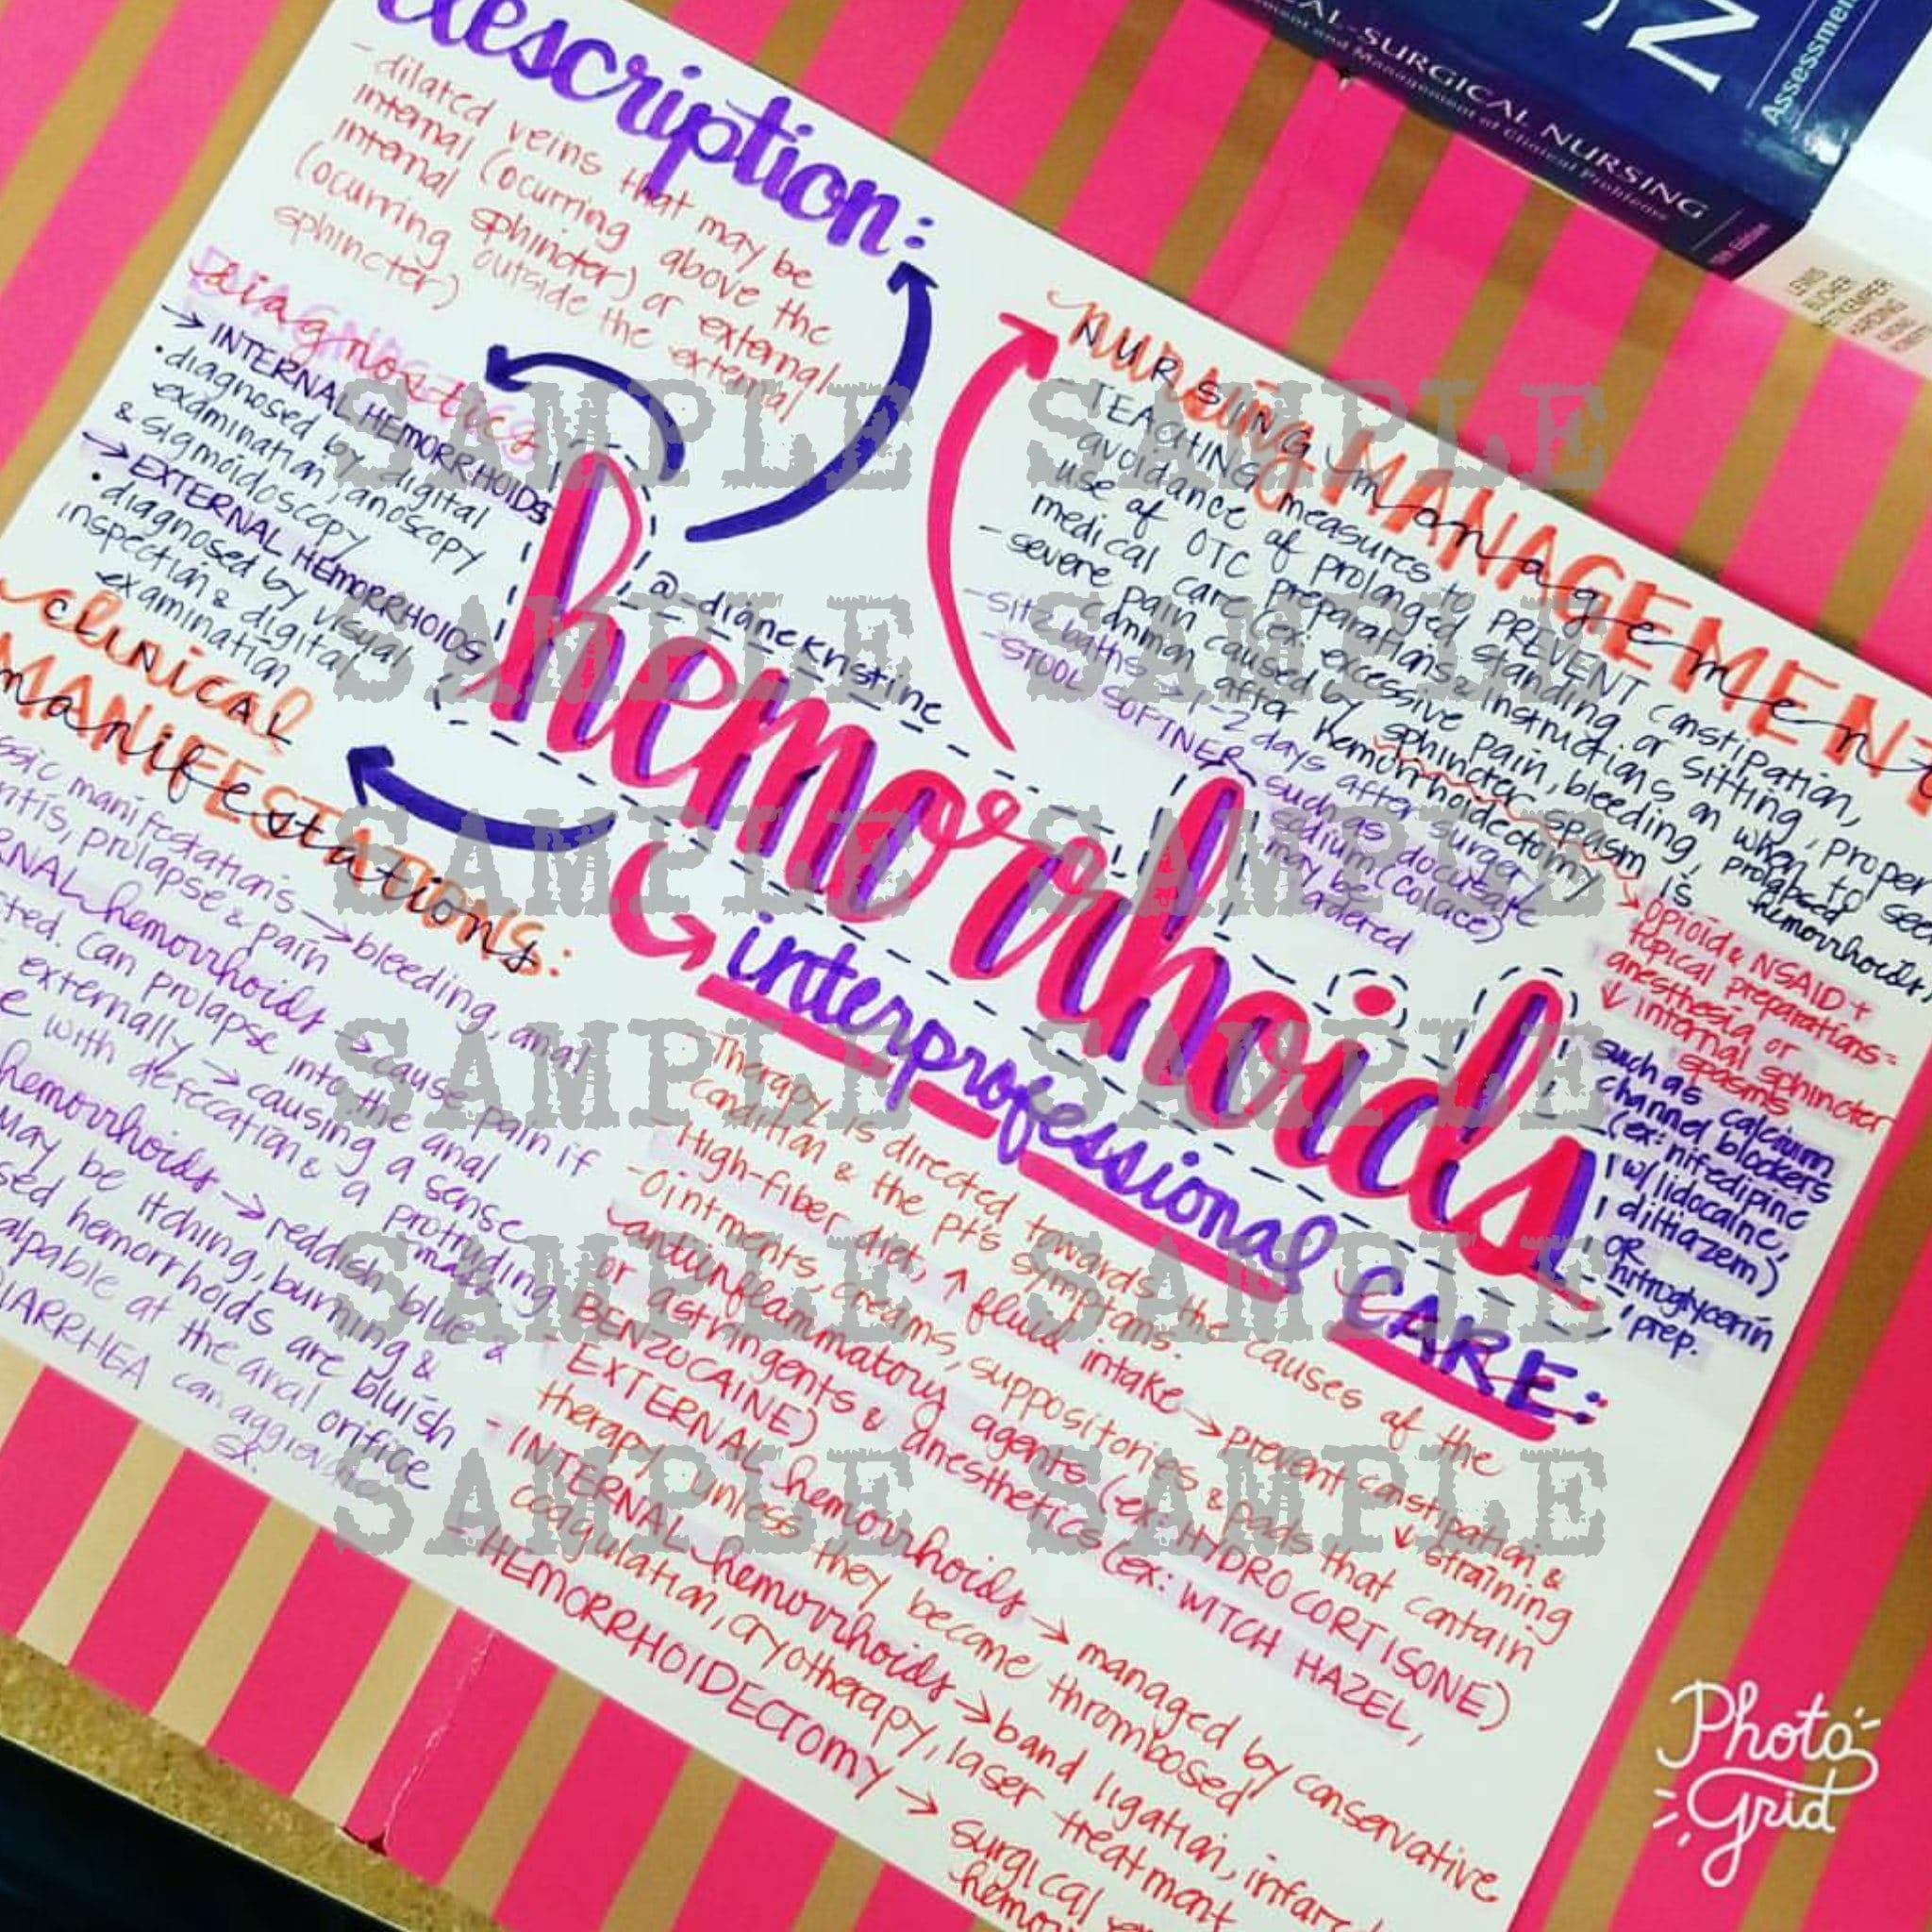 description:
- dilated veins that may be
internal (ocurring above the
internal sphincter) or external
(ocurring outside the external
sphincter)
diagnostics
→ INTERNAL HEMORRHOIDS
• diagnosed by digital
examination, anoscopy
& sigmoidoscopy
→ EXTERNAL HEMORRHOIDS
• diagnosed by visual
inspection & digital
examination
clinical
CLINICAL
MANIFESTATIONS:
manifestations
manifestations → bleeding, anal
prolapse & pain
hemorrhoids → cause pain if
Can prolapse into the anal
externally → causing a sense
with defecation & a protruding
mass.
hemorrhoids → reddish blue &
May be itching, burning &
hemorrhoids are bluish
at the anal orifice
DIARRHEA can aggravate
sx.
hemorrhoids
@_dianekristine_
nursing MANAGEMENT
NURSING management
- TEACHING measures to PREVENT constipation,
avoidance of prolonged standing or sitting, proper
use of OTC preparations & instructions on when to seek
medical care (ex: excessive pain, bleeding, prolapsed
hemorrhoids)
- severe pain caused by sphincter spasm is
common after hemorrhoidectomy
→ opioid & NSAID +
topical preparations =
anesthesia or
↓ internal sphincter
spasms
such as calcium
channel blockers
(ex: nifedipine
w/ lidocaine,
diltiazem)
OR
nitroglycerin
prep.
- sitz baths → 1-2 days after surgery
- STOOL SOFTNER such as docusate
sodium (Colace)
may be
ordered
interprofessional CARE:
- Therapy is directed towards the causes of the
condition & the pt's symptoms.
- High-fiber diet, ↑ fluid intake → prevent constipation &
↓ straining
- Ointments, creams, suppositories & pads that contain
antiinflammatory agents (ex: HYDROCORTISONE)
or astringents & anesthetics (ex: WITCH HAZEL,
BENZOCAINE)
- EXTERNAL hemorrhoids → managed by conservative
therapy unless they become thrombosed
- INTERNAL hemorrhoids → band ligation, infared
coagulation, cryotherapy, laser treatment
- HEMORRHOIDECTOMY → surgical
SAMPLE SAMPLE
SAMPLE SAMPLE
SAMPLE SAMPLE
SAMPLE SAMPLE
SAMPLE SAMPLE
SAMPLE SAMPLE
-SURGICAL NURSING
Assessment and Management of Clinical Problems
Edition
Photo
Grid